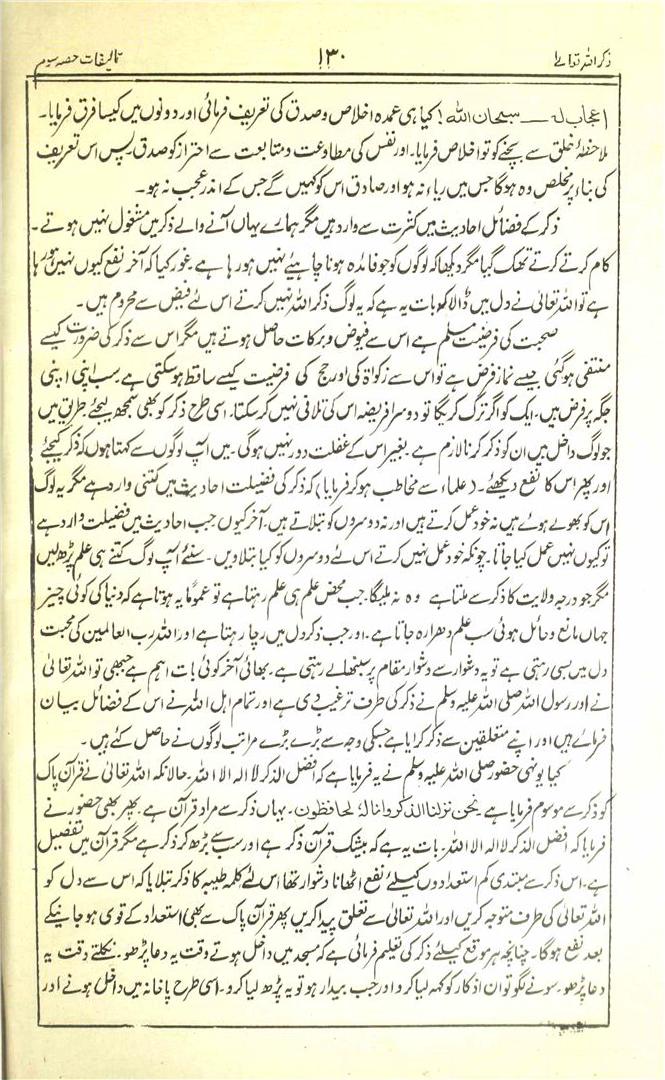 ذکر اللہ تعالےٰ ۱۳۰ تالیفات حصہ سوم
اعجاب لہ ــــ سبحان اللہ! کیا ہی عمدہ اخلاص و صدق کی تعریف فرمائی اور دونوں میں کیسا فرق فرمایا۔
ملاحظۂ خلق سے بچنے کو تو اخلاص فرمایا۔ اور نفس کی مطاوعت و متابعت سے احتراز کو صدق پس اس تعریف
کی بناء پر مخلص وہ ہوگا جس میں ریاء نہ ہو اور صادق اس کو کہیں گے جس کے اندر عجب نہ ہو۔
ذکر کے فضائل احادیث میں کثرت سے وارد ہیں مگر ہمارے یہاں آنے والے ذکر میں مشغول نہیں ہوتے۔
کام کرتے کرتے تھک گیا مگر دیکھا کہ لوگوں کو جو فائدہ ہونا چاہیئے نہیں ہو رہا ہے۔ غور کیا کہ آخر نفع کیوں نہیں ہو رہا
ہے تو اللہ تعالیٰ نے دل میں ڈالا کہ بات یہ ہے کہ یہ لوگ ذکر اللہ نہیں کرتے اس لئے فیض سے محروم ہیں۔
صحبت کی فرضیت مسلم ہے اس سے فیوض و برکات حاصل ہوتے ہیں مگر اس سے ذکر کی ضرورت کیسے
منتفی ہوگئی جیسے نماز فرض ہے تو اس سے زکواۃ کی اور حج کی فرضیت کیسے ساقط ہوسکتی ہے۔ سب اپنی اپنی
جگہ پر فرض ہیں۔ ایک کو اگر ترک کریگا تو دوسرا فریضہ اس کی تلافی نہیں کرسکتا۔ اسی طرح ذکر کو بھی سمجھ لیجئے۔ طریق میں
جو لوگ داخل ہیں ان کو ذکر کرنا لازم ہے بغیر اس کے غفلت دور نہیں ہوگی۔ میں آپ لوگوں سے کہتا ہوں کہ ذکر کیجئے
اور پھر اس کا نفع دیکھئے۔ (علماء سے مخاطب ہوکر فرمایا) کہ ذکر کی فضیلت احادیث میں کتنی وارد ہے مگر یہ لوگ
اس کو بھولے ہوئے ہیں نہ خود عمل کرتے ہیں اور نہ دوسروں کو بتلاتے ہیں۔ آخر کیوں جب احادیث میں فضیلت وارد ہے
تو کیوں نہیں عمل کیا جاتا۔ چونکہ خود عمل نہیں کرتے اس لئے دوسروں کو کیا بتلاویں۔ سنئے آپ لوگ کتنے ہی علم پڑھ لیں
مگر جو درجہ ولایت کا ذکر سے ملتا ہے وہ نہ ملیگا۔ جب محض علم ہی علم رہتا ہے تو عموماً یہ ہوتا ہے کہ دنیا کی کوئی چیز
جہاں مانع و حائل ہوئی سب علم دھرا رہ جاتا ہے۔ اور جب ذکر دل میں رچا رہتا ہے اور اللہ رب العالمین کی محبت
دل میں بسی رہتی ہے تو یہ دشوار سے دشوار مقام پر سنبھالے رہتی ہے۔ بھائی آخر کوئی بات اہم ہے جبھی تو اللہ تعالیٰ
نے اور رسول اللہ صلی اللہ علیہ وسلم نے ذکر کی طرف ترغیب دی ہے اور تمام اہل اللہ نے اس کے فضائل بیان
فرمائے ہیں اور اپنے متعلقین سے ذکر کرایا ہے جسکی وجہ سے بڑے بڑے مراتب لوگوں نے حاصل کئے ہیں۔
کیا یونہی حضور صلی اللہ علیہ وسلم نے یہ فرمایا ہے کہ افضل الذکر لا الہ الا اللہ۔ حالانکہ اللہ تعالیٰ نے قرآن پاک
کو ذکر سے موسوم فرمایا ہے نحن نزلنا الذکر وانا لہ لحافظون۔ یہاں ذکر سے مراد قرآن ہے۔ پھر بھی حضور نے
فرمایا کہ افضل الذکر لا الہ الا اللہ۔ بات یہ ہے کہ بیشک قرآن ذکر ہے اور سب سے بڑھ کر ذکر ہے مگر قرآن میں تفصیل
ہے۔ اس ذکر سے مبتدی کم استعدادوں کیلئے نفع اٹھانا دشوار تھا اس لئے کلمہ طیبہ کا ذکر بتلایا کہ اس سے دل کو
اللہ تعالیٰ کی طرف متوجہ کریں اور اللہ تعالیٰ سے تعلق پیدا کریں پھر قرآن پاک سے بھی استعداد کے قوی ہو جانیکے
بعد نفع ہوگا۔ چنانچہ ہر موقع کیلئے ذکر کی تعلیم فرمائی ہے کہ مسجد میں داخل ہوتے وقت یہ دعا پڑھو۔ نکلتے وقت یہ
دعا پڑھو۔ سونے لگو تو ان اذکار کو کہہ لیا کرو اور جب بیدار ہو تو یہ پڑھ لیا کرو۔ اسی طرح پاخانہ میں داخل ہونے اور